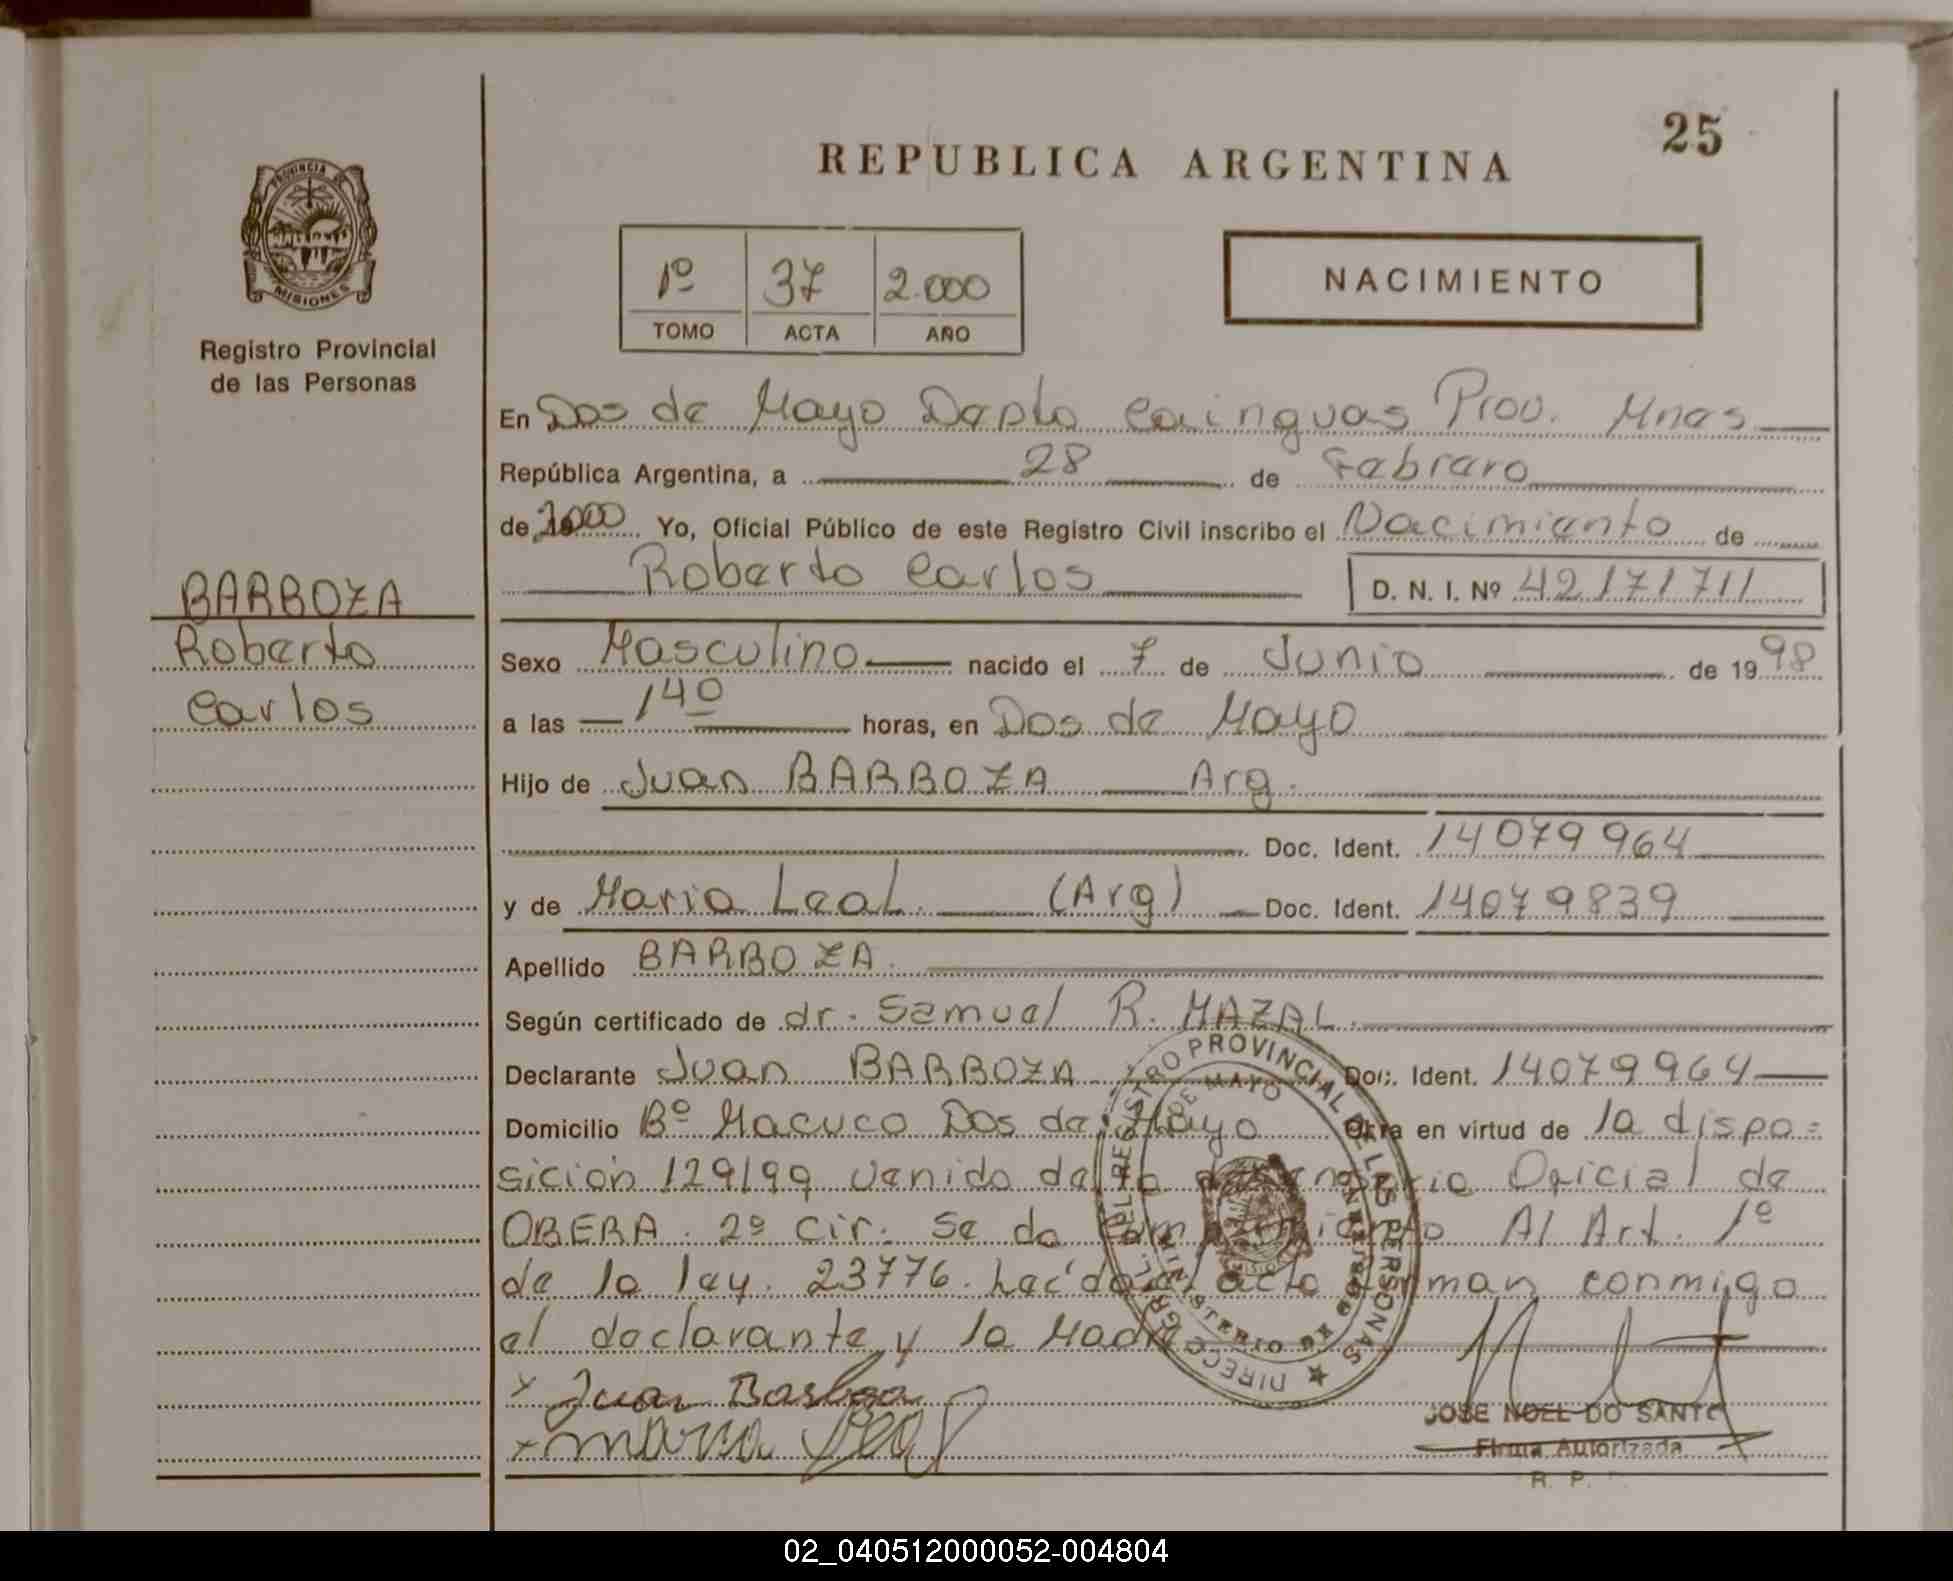 25
REPUBLICA ARGENTINA
PROVINCIA DE
MISIONES
Registro Provincial
de las Personas
1º 37 2.000
TOMO ACTA AÑO
NACIMIENTO
En Dos de Mayo Depto Cainguas Prov. Mnes
República Argentina, a 28 de Febrero
de 2000 Yo, Oficial Público de este Registro Civil inscribo el Nacimiento de
Roberto Carlos D. N. I. Nº 42171711
BARBOZA
Roberto
Carlos
Sexo Masculino nacido el 7 de Junio de 1998
a las 14º horas, en Dos de Mayo
Hijo de Juan BARBOZA Arg.
Doc. Ident. 14079964
y de Maria Leal (Arg) Doc. Ident. 14079839
Apellido BARBOZA.
Según certificado de dr. Samuel R. MAZAL.
Declarante Juan BARBOZA Doc. Ident. 14079964
Domicilio Bº Macuco Dos de Mayo Obra en virtud de la dispo=
sición 129/99 venido de la Oficial de
OBERA. 2º Cir. Se da Al Art. 1º
de la ley. 23776. Leída el acta firman conmigo
el declarante y la Madre
x Juan Barboza
x maria Leal
REGISTRO PROVINCIAL DE LAS PERSONAS
DE MAYO
MINISTERIO DE
JOSE NOEL DO SANTO
Firma Autorizada
R. P.
02_040512000052-004804